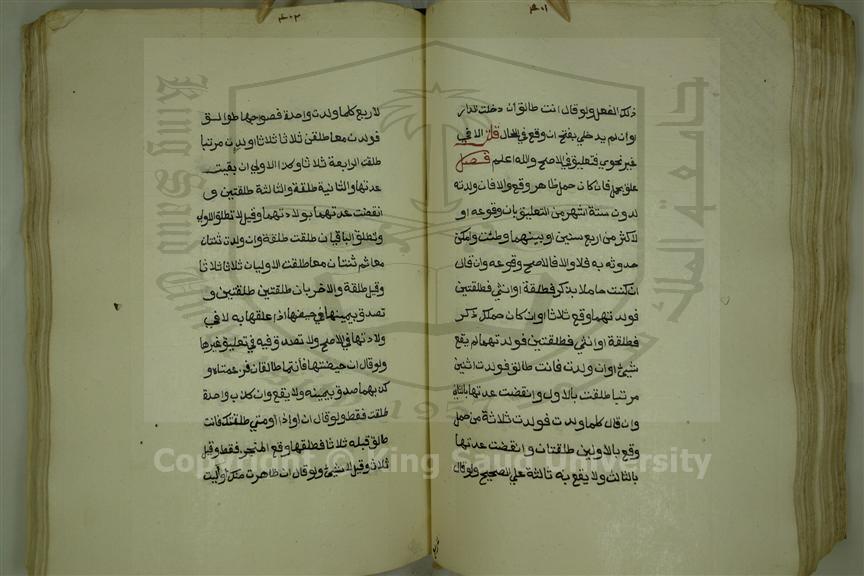 ٤٠١
ذلك الفعل ولو قال انت طالق ان دخلت الدار
او ان لم يدخلي بفتح ان وقع في الحال قلت الا في
غير نحوي فتعليق في الاصح والله اعلم فصل
علق بحمل فان كان حمل ظاهر وقع والا فان ولدته
لدون ستة اشهر من التعليق بان وقوعه او
لاكثر من اربع سنين او بينهما وطئت وامكن
حدوثه به فلا والا فالاصح وقوعه وان قال
ان كنت حاملا بذكر فطلقة او انثي فطلقتين
فولدتهما وقع ثلاثا او ان كان حملك ذكر
فطلقة او انثي فطلقتين فولدتهما لم يقع
شيئ او ان ولدت فانت طالق فولدت اثنين
مرتبا طلقت بالاول وانقضت عدتها بالثاني
وان قال كلما ولدت فولدت ثلاثة من حمل
وقع بالاولين طلقتان وانقضت عدتها
بالثالث ولا يقع به ثالثة علي الصحيح ولو قال
٤٠٢
لاربع كلما ولدت واحدة فصواحبها طوالق
فولدت معا طلقن ثلاثا ثلاثا او ولدن مرتبا
طلقت الرابعة ثلاثا وكذا الاولي ان بقيت
عدتها والثانية طلقة والثالثة طلقتين و
انقضت عدتهما بولادتهما وقيل لا تطلق الاولي
وتطلق الباقيات طلقت طلقة وان ولدت ثنتان
معا ثم ثنتان معا طلقت الاوليان ثلاثا ثلاثا
وقيل طلقة والاخريان طلقتين طلقتين و
تصدق بيمينها في حيضها اذا علقها به لا في
ولادتها في الاصح ولا تصدق فيه في تعليق غيرها
ولو قال ان حيضتما فانتما طالقان فزعمتاه و
كذبهما صدق بيمينه ولا يقع وان كذب واحدة
طلقت فقط ولو قال ان او اذا او متي طلقتك فانت
طالق قبله ثلاثا فطلقها وقع المنجز فقط وقيل
ثلاث وقيل لا شيئ ولو قال ان ظاهرت منك او اليت
King Saud University
جامعة الملك
195
Copyright © King Saud University